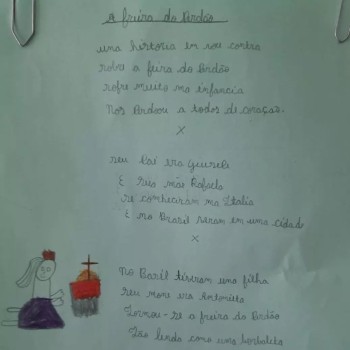 A freira do Perdão
uma historia eu vou contar
sobre a freira do Perdão
sofre muito na infancia
Mas Perdoou a todos de coração.
X
seu Pai era
E sua mãe Rafaela
se conheceram na Italia
E no Brasil viviam em uma cidade
X
No Brasil tiveram uma filha
seu nome era Antonieta
Tornou-se a freira do Perdão
Tão linda como uma borboleta